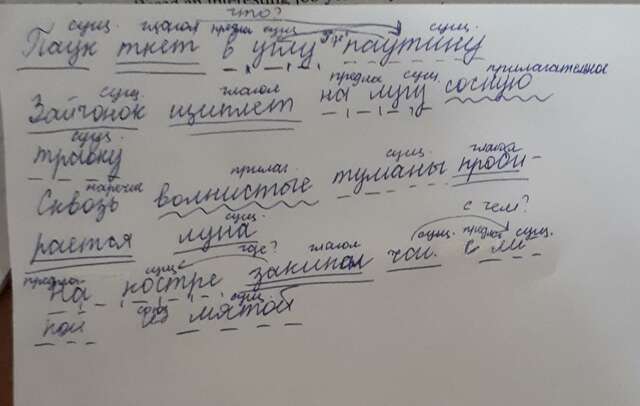 что?
сущ. глагол предлог сущ. где? сущ.
Паук ткет в углу паутину
сущ. глагол предлог сущ. прилагательное
Зайчонок щиплет на лугу сосную
сущ.
травку
наречие прилаг. сущ. глагол
Сквозь волнистые туманы проби-
сущ. с чем?
рается луна
предлог сущ. где? глагол сущ. предлог сущ.
На костре закипал чай с ли-
союз сущ.
пой и мятой